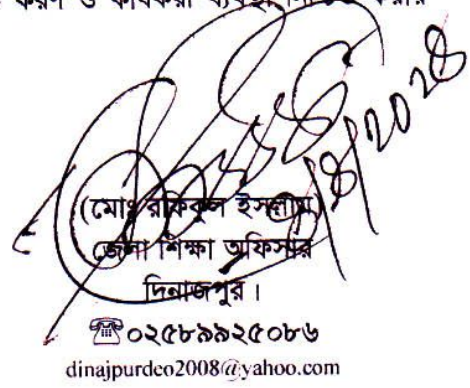 করণ ও কার্যকরী ব্যবস্থা করার
(মোঃ রকিকুল ইসলাম)
জেলা শিক্ষা অফিসার
দিনাজপুর।
☎০২৫৮৯৯২৫০৮৬
dinajpurdeo2008@yahoo.com